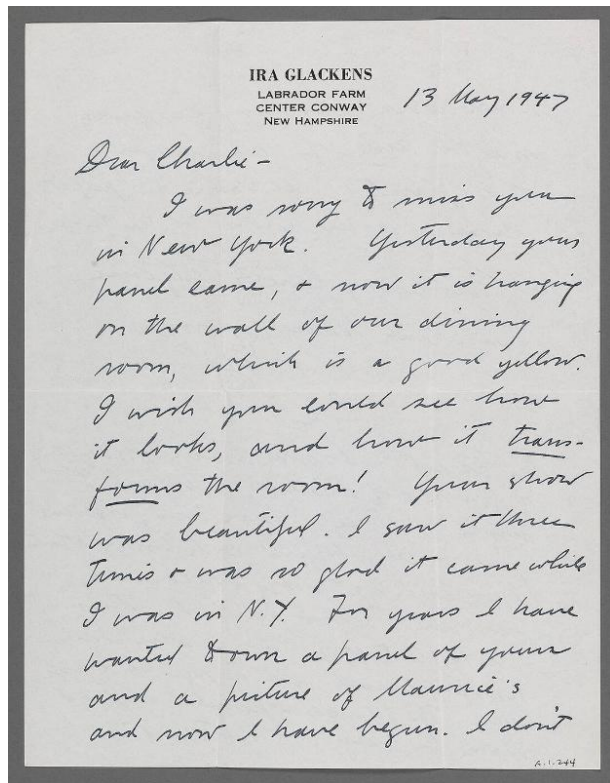 IRA GLACKENS
LABRADOR FARM
CENTER CONWAY
NEW HAMPSHIRE
13 May 1947
Dear Charlie—
I was sorry to miss you
in New York. Yesterday your
panel came, & now it is hanging
on the wall of our dining
room, which is a good yellow.
I wish you could see how
it looks, and how it trans-
forms the room! Your show
was beautiful. I saw it three
times & was so glad it came while
I was in N.Y. For years I have
wanted to own a panel of yours
and a picture of Maurice's
and now I have begun. I don't
A.1.244